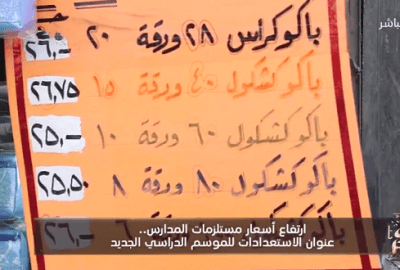 مباشر
باكو كراس ٢٨ ورقة ٢٠ ٢٦,-
باكو كشكول ٤٠ ورقة ١٥ ٢٦,٧٥
باكو كشكول ٦٠ ورقة ١٠ ٢٥,-
باكو كشكول ٨٠ ورقة ٨ ٢٥,٥٠
ارتفاع أسعار مستلزمات المدارس..
عنوان الاستعدادات للموسم الدراسي الجديد
٦ ٢٦,-